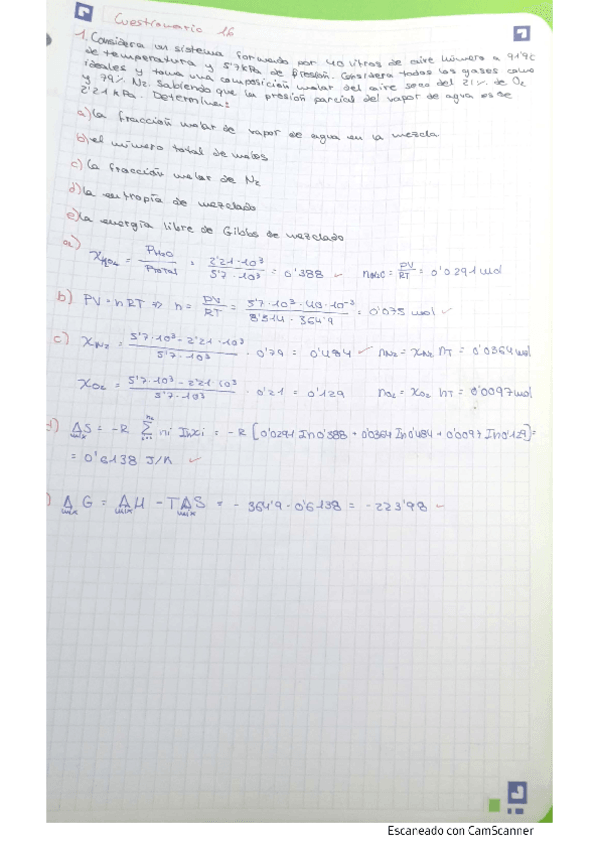 Cuestionario 16
1. Considera un sistema formado por 40 litros de aire húmero a 91'9C
de temperatura y 5'7kPa de presión. Considera todos los gases como
ideales y toma una composición molar del aire seco del 21% de O2
y 79% N2. Sabiendo que la presión parcial del vapor de agua es de
2'21 kPa. Determina:
a) la fracción molar de vapor de agua en la mezcla.
b) el número total de moles
c) la fracción molar de N2
d) la entropía de mezclado
e) la energía libre de Gibbs de mezclado
a) = PH2O / PTOTAL = 2'21·10³ / 5'7·10³ = 0'388 ✓ = PV/RT = 0'0291 mol
b) PV = nRT ⇒ n = PV/RT = 5'7·10³·40·10⁻³ / 8'314·364'9 = 0'075 mol ✓
c) XN2 = 5'7·10³ - 2'21·10³ / 5'7·10³ · 0'79 = 0'484 ✓ nN2 = XN2 nT = 0'0364 mol
XO2 = 5'7·10³ - 2'21·10³ / 5'7·10³ · 0'21 = 0'129 nO2 = XO2 nT = 0'0097 mol
d) ΔmixS = -R Σ ni ln xi = -R [0'0291 ln 0'388 + 0'0364 ln 0'484 + 0'0097 ln 0'129] =
= 0'6138 J/K ✓
) ΔmixG = ΔmixH - TΔmixS = - 364'9·0'6138 = -223'98 ✓
Escaneado con CamScanner